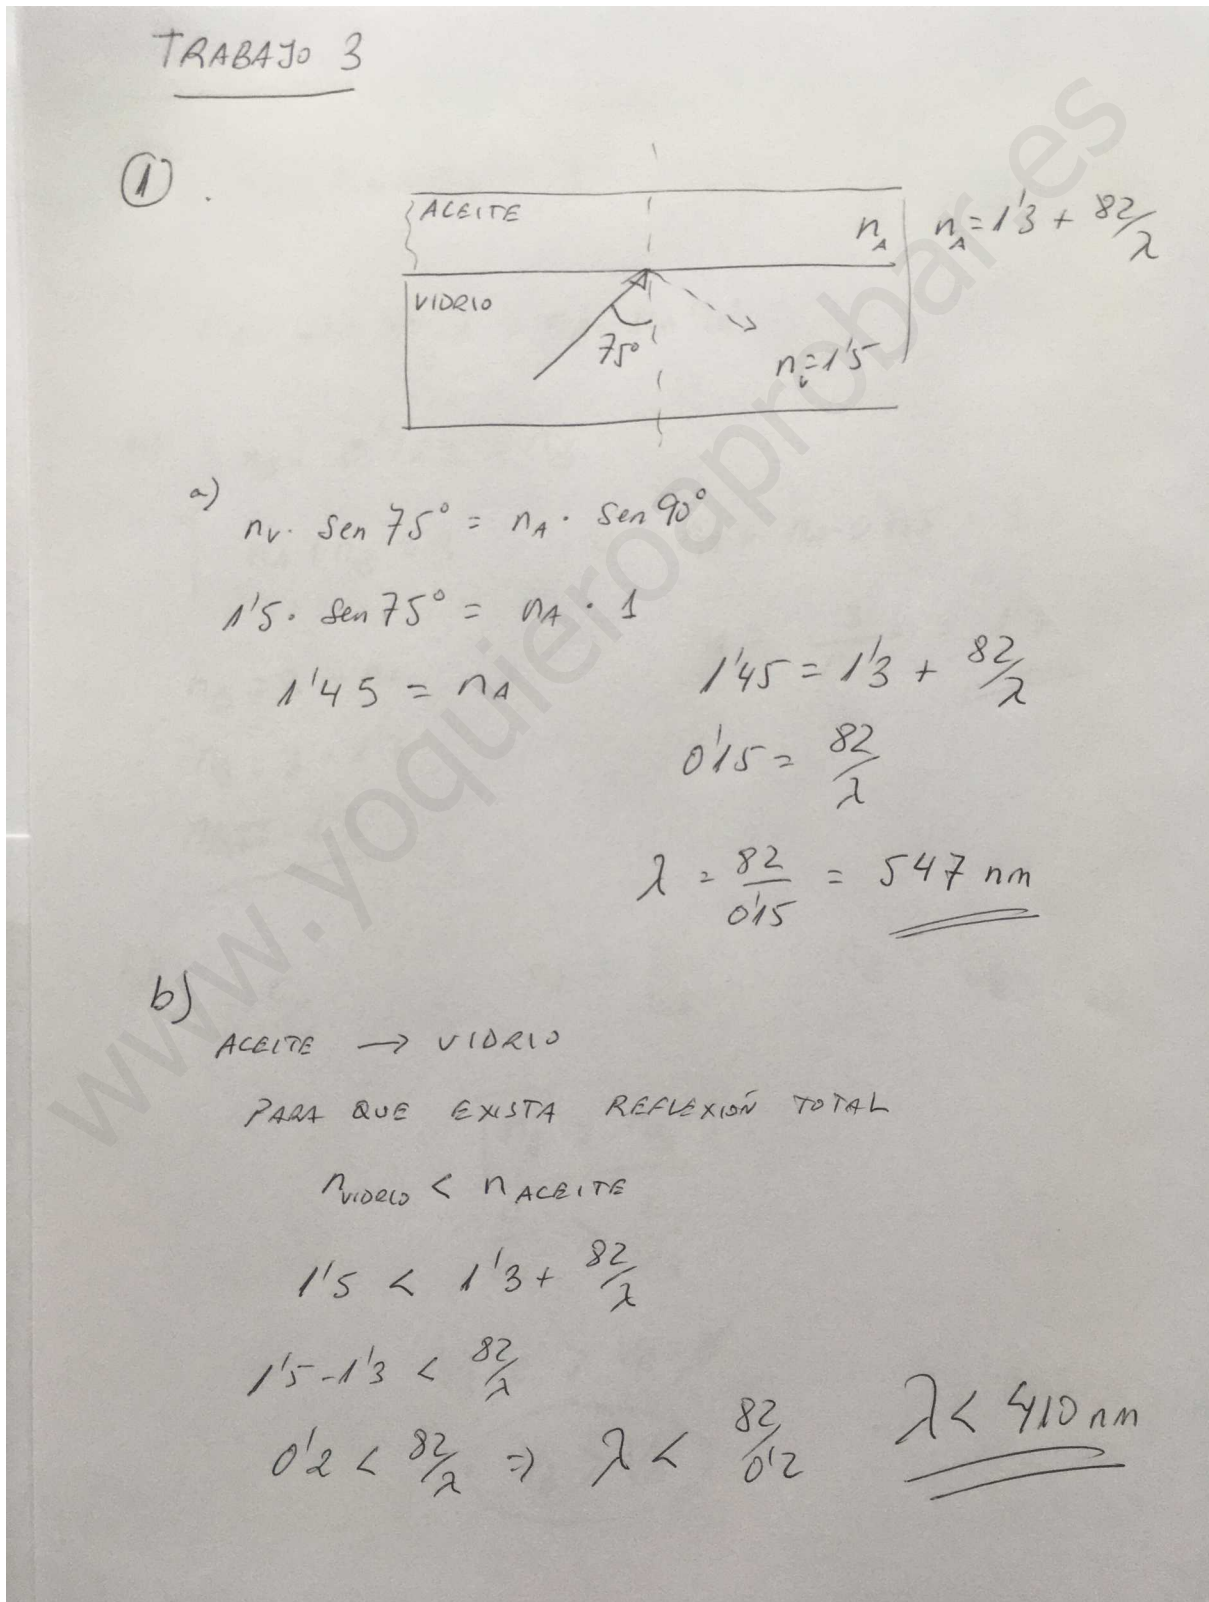 TRABAJO 3
1
ACEITE
n_A
n_A = 1'3 + 82/λ
VIDRIO
75°
n_v = 1'5
a)
n_v · sen 75° = n_A · sen 90°
1'5 · sen 75° = n_A · 1
1'45 = n_A
1'45 = 1'3 + 82/λ
0'15 = 82/λ
λ = 82/0'15 = 547 nm
b)
ACEITE → VIDRIO
PARA QUE EXISTA REFLEXIÓN TOTAL
n_VIDRIO < n_ACEITE
1'5 < 1'3 + 82/λ
1'5 - 1'3 < 82/λ
0'2 < 82/λ ⇒ λ < 82/0'2 λ < 410 nm
www.yoquieroaprobar.es